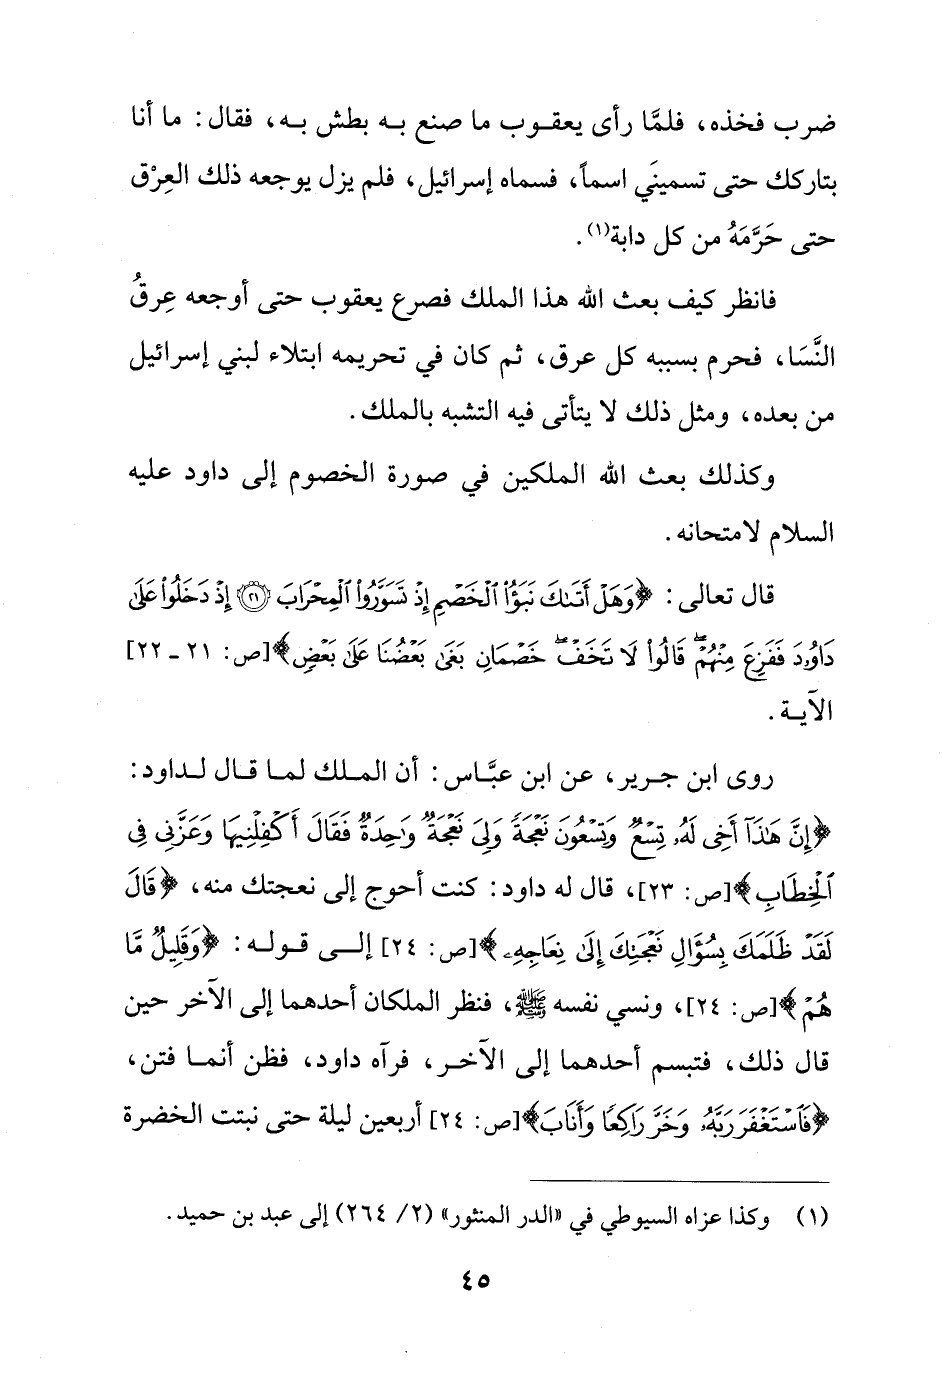 ضرب فخذه، فلمَّا رأى يعقوب ما صنع به بطش به، فقال: ما أنا
بتاركك حتى تسمينَي اسماً، فسماه إسرائيل، فلم يزل يوجعه ذلك العِرْق
حتى حَرَّمَهُ من كل دابة(١).
فانظر كيف بعث الله هذا الملك فصرع يعقوب حتى أوجعه عِرقُ
النَّسَا، فحرم بسببه كل عرق، ثم كان في تحريمه ابتلاء لبني إسرائيل
من بعده، ومثل ذلك لا يتأتى فيه التشبه بالملك.
وكذلك بعث الله الملكين في صورة الخصوم إلى داود عليه
السلام لامتحانه.
قال تعالى: ﴿وَهَلْ أَتَىٰكَ نَبَؤُا۟ ٱلْخَصْمِ إِذْ تَسَوَّرُوا۟ ٱلْمِحْرَابَ ۝٢١ إِذْ دَخَلُوا۟ عَلَىٰ
دَاوُۥدَ فَفَزِعَ مِنْهُمْ ۖ قَالُوا۟ لَا تَخَفْ ۖ خَصْمَانِ بَغَىٰ بَعْضُنَا عَلَىٰ بَعْضٍ﴾[ص: ٢١ ـ ٢٢]
الآية.
روى ابن جرير، عن ابن عبَّاس: أن الملك لما قال لداود:
﴿إِنَّ هَٰذَآ أَخِى لَهُۥ تِسْعٌ وَتِسْعُونَ نَعْجَةً وَلِىَ نَعْجَةٌ وَٰحِدَةٌ فَقَالَ أَكْفِلْنِيهَا وَعَزَّنِى فِى
ٱلْخِطَابِ﴾[ص: ٢٣]، قال له داود: كنت أحوج إلى نعجتك منه، ﴿قَالَ
لَقَدْ ظَلَمَكَ بِسُؤَالِ نَعْجَتِكَ إِلَىٰ نِعَاجِهِۦ﴾[ص: ٢٤] إلى قوله: ﴿وَقَلِيلٌ مَّا
هُمْ﴾[ص: ٢٤]، ونسي نفسه ﷺ، فنظر الملكان أحدهما إلى الآخر حين
قال ذلك، فتبسم أحدهما إلى الآخر، فرآه داود، فظن أنما فتن،
﴿فَٱسْتَغْفَرَ رَبَّهُۥ وَخَرَّ رَاكِعًا وَأَنَابَ﴾[ص: ٢٤] أربعين ليلة حتى نبتت الخضرة
(١) وكذا عزاه السيوطي في «الدر المنثور» (٢/ ٢٦٤) إلى عبد بن حميد.
٤٥